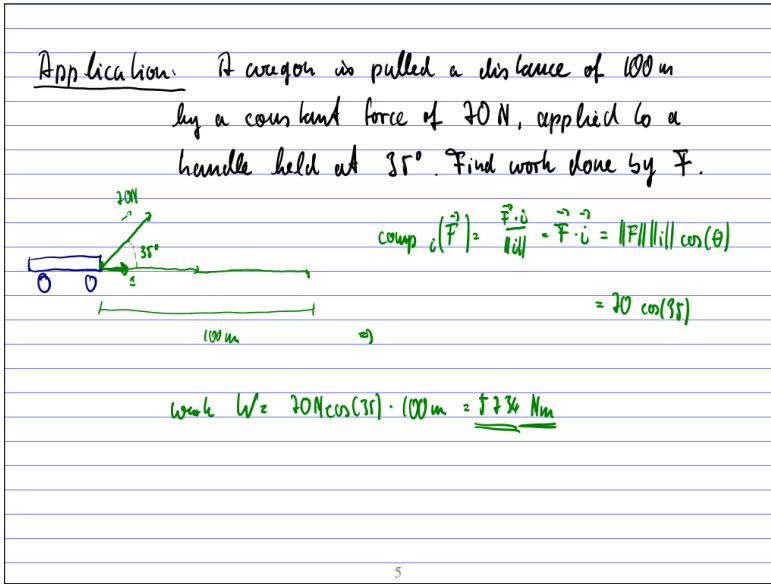 Application: A wagon is pulled a distance of 100 m
by a constant force of 70 N, applied to a
handle held at 35°. Find work done by F.
70N
35°
i
100 m
comp i(F⃗) = F⃗·i / ||i|| = F⃗·i⃗ = ||F|| ||i|| cos(θ)
= 70 cos(35)
⇒
work W = 70N cos(35) · 100 m = 5734 Nm
5